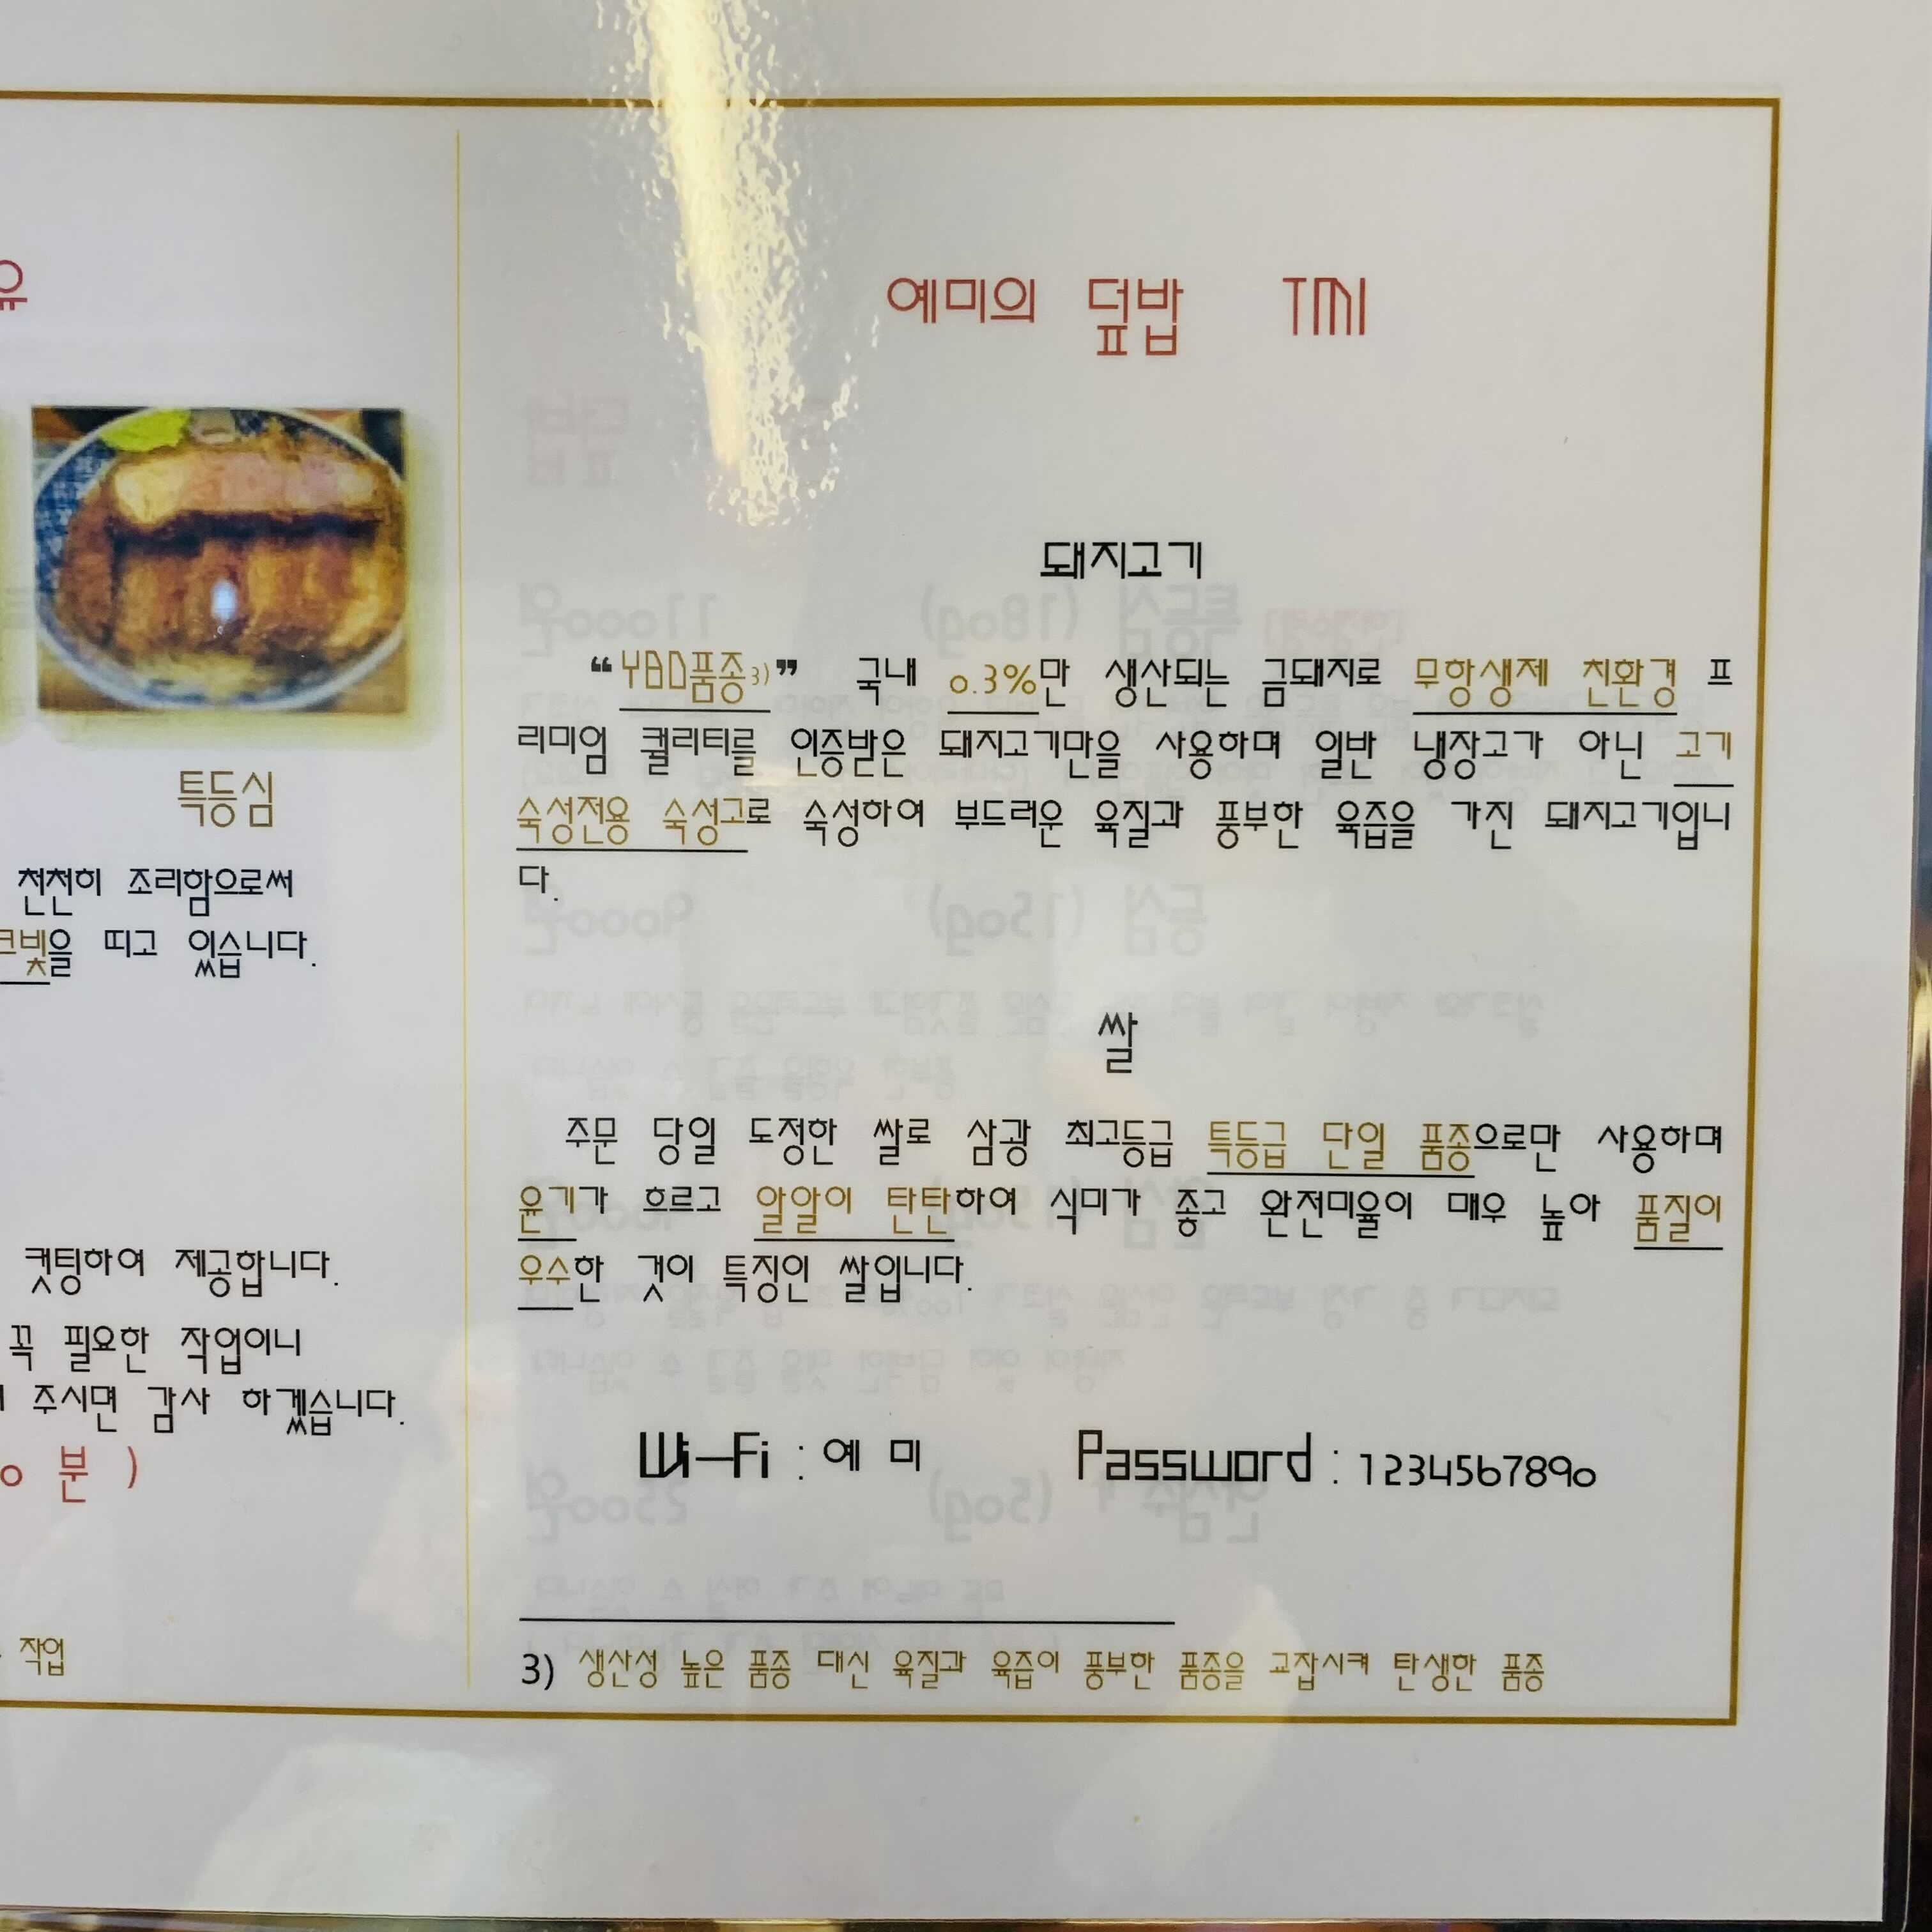 유
특등심
천천히 조리함으로써
빛을 띠고 있습니다.
컷팅하여 제공합니다.
꼭 필요한 작업이니
주시면 감사 하겠습니다.
0 분 )
작업
예미의 덮밥 TMI
돼지고기
“YBD품종3)” 국내 0.3%만 생산되는 금돼지로 무항생제 친환경 프
리미엄 퀄리티를 인증받은 돼지고기만을 사용하며 일반 냉장고가 아닌 고기
숙성전용 숙성고로 숙성하여 부드러운 육질과 풍부한 육즙을 가진 돼지고기입니
다.
쌀
주문 당일 도정한 쌀로 삼광 최고등급 특등급 단일 품종으로만 사용하며
윤기가 흐르고 알알이 탄탄하여 식미가 좋고 완전미율이 매우 높아 품질이
우수한 것이 특징인 쌀입니다.
Wi-Fi : 예 미 Password : 1234567890
3) 생산성 높은 품종 대신 육질과 육즙이 풍부한 품종을 교잡시켜 탄생한 품종